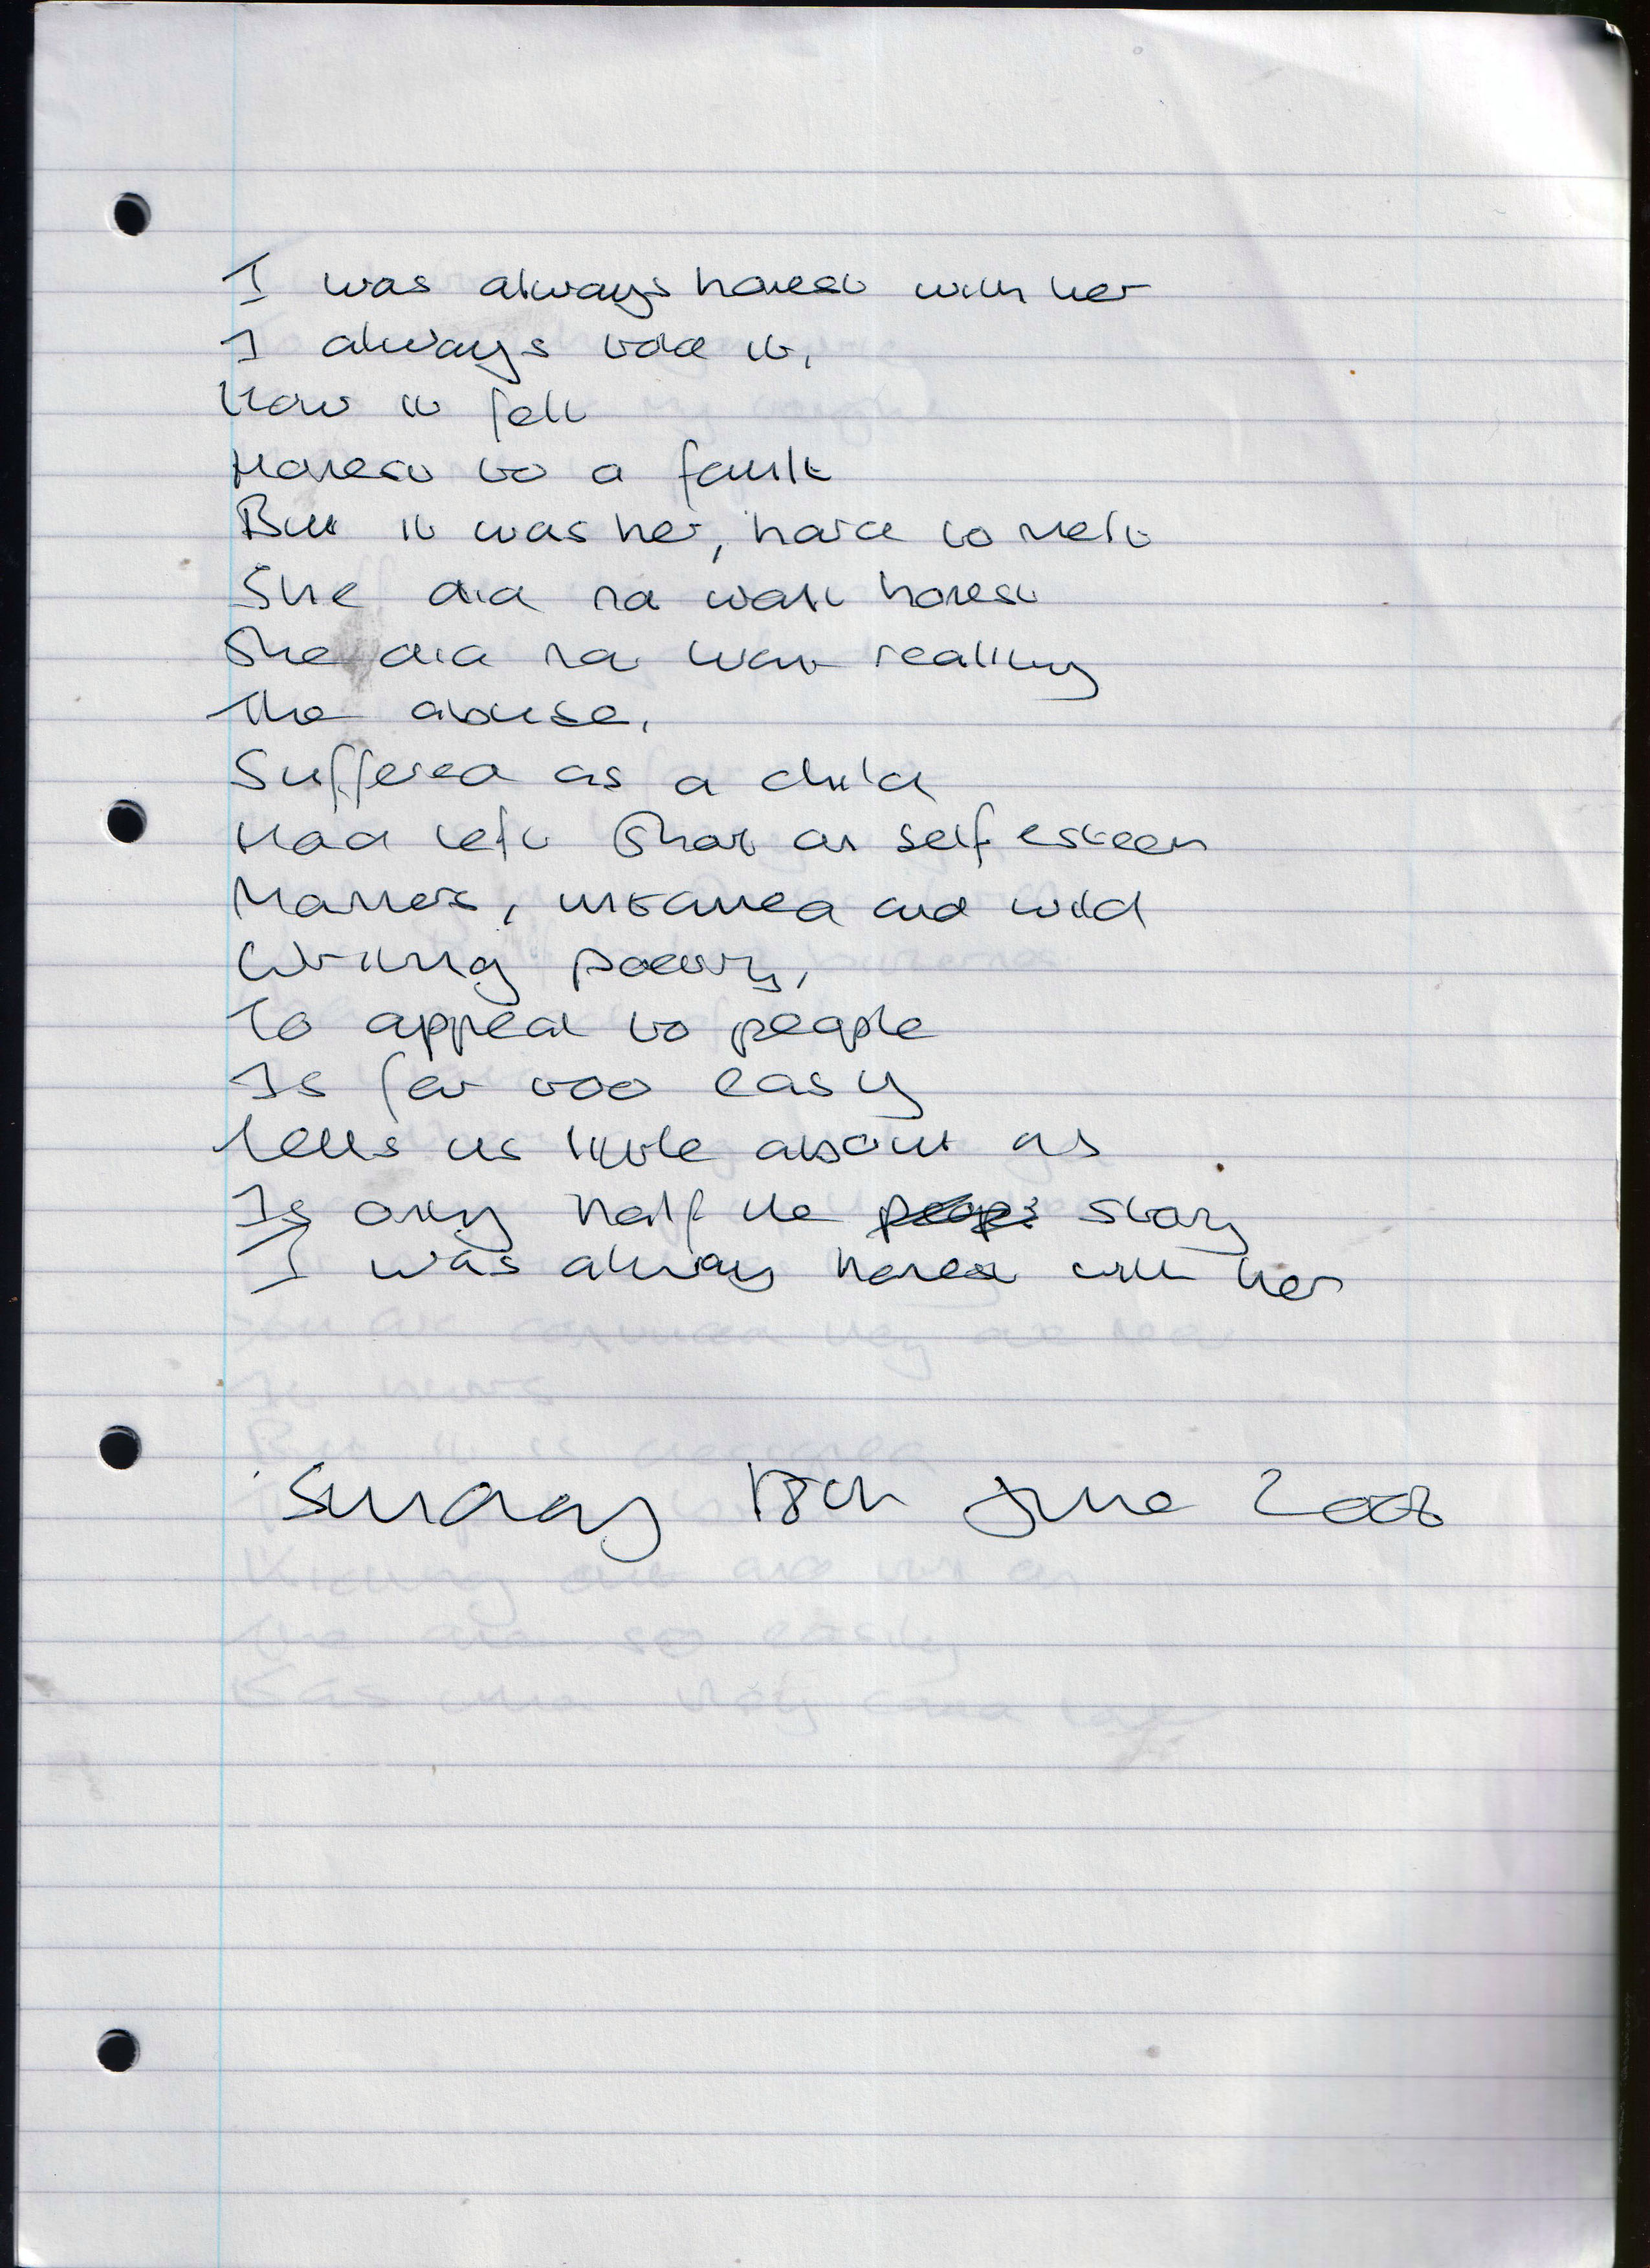 I was always honest with her
I always told it,
How it felt
Honest to a fault
But it was her, hard to melt
She did not want honest
She did not want reality
The abuse,
Suffered as a child
Had left Short on self esteem
Manners, untamed and wild
Writing poetry,
To appeal to people
Is far too easy
Tells us little about us
Is only half the story
I was always honest with her
Sunday 18th June 2008